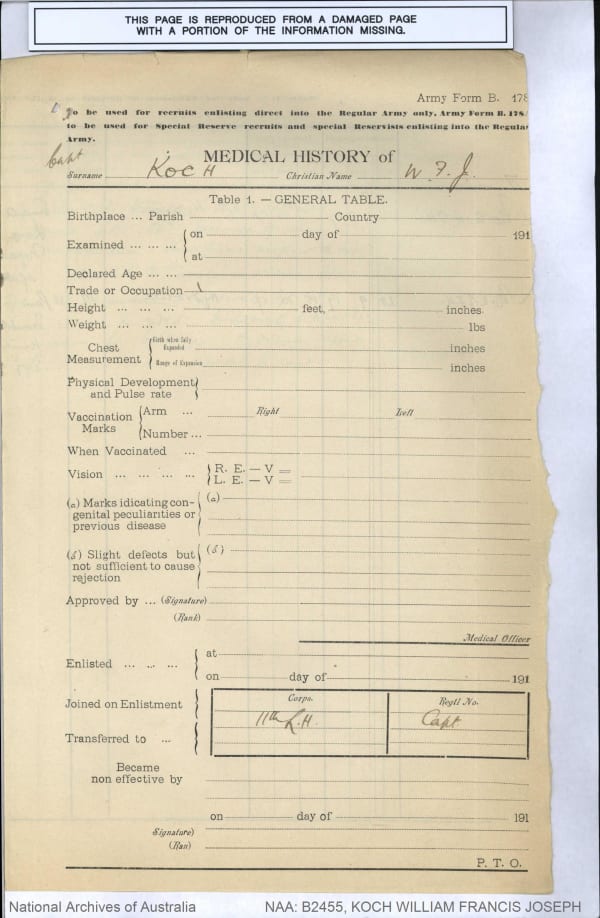 THIS PAGE IS REPRODUCED FROM A DAMAGED PAGE
WITH A PORTION OF THE INFORMATION MISSING.
Army Form B. 178
To be used for recruits enlisting direct into the Regular Army only, Army Form B. 178.
to be used for Special Reserve recruits and special Reservists enlisting into the Regular
Army.
Capt
MEDICAL HISTORY of
Surname Koch Christian Name W. F. J.
Table 1. — GENERAL TABLE.
Birthplace ... Parish Country
Examined ... ... ... on day of 191
at
Declared Age ... ...
Trade or Occupation
Height ... ... ... feet, inches.
Weight ... ... ... lbs
Chest Measurement Girth when fully Expanded inches
Range of Expansion inches
Physical Development
and Pulse rate
Vaccination Marks Arm ... Right Left
Number ...
When Vaccinated ...
Vision ... ... ... ... R. E. — V =
L. E. — V =
(a) Marks idicating con- (a)
genital peculiarities or
previous disease
(b) Slight defects but (b)
not sufficient to cause
rejection
Approved by ... (Signature)
(Rank)
Medical Officer
Enlisted ... ... ... at
on day of 191
Corps. Regtl No.
Joined on Enlistment 11th L.H. Capt
Transferred to ...
Became
non effective by
on day of 191
Signature)
(Ran)
P. T. O.
National Archives of Australia NAA: B2455, KOCH WILLIAM FRANCIS JOSEPH